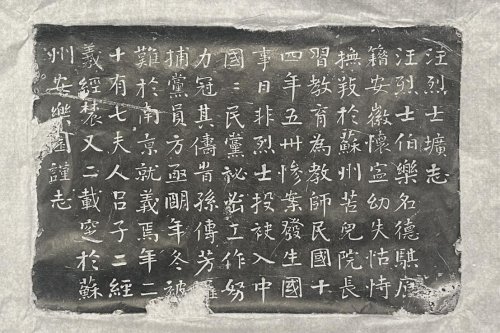 汪烈士壙志
汪烈士伯樂名德騏原
籍安徽懷寧幼失怙恃
撫育於蘇州苦兒院長
習教育為教師民國十
四年五卅慘案發生國
事日非烈士投袂入中
國國民黨祕密工作努
力冠其儔昔孫傳芳羅
捕黨員方亟翌年冬被
難於南京就義焉年二
十有七夫人呂子二經
義經農又二載窆於蘇
州安樂園謹志